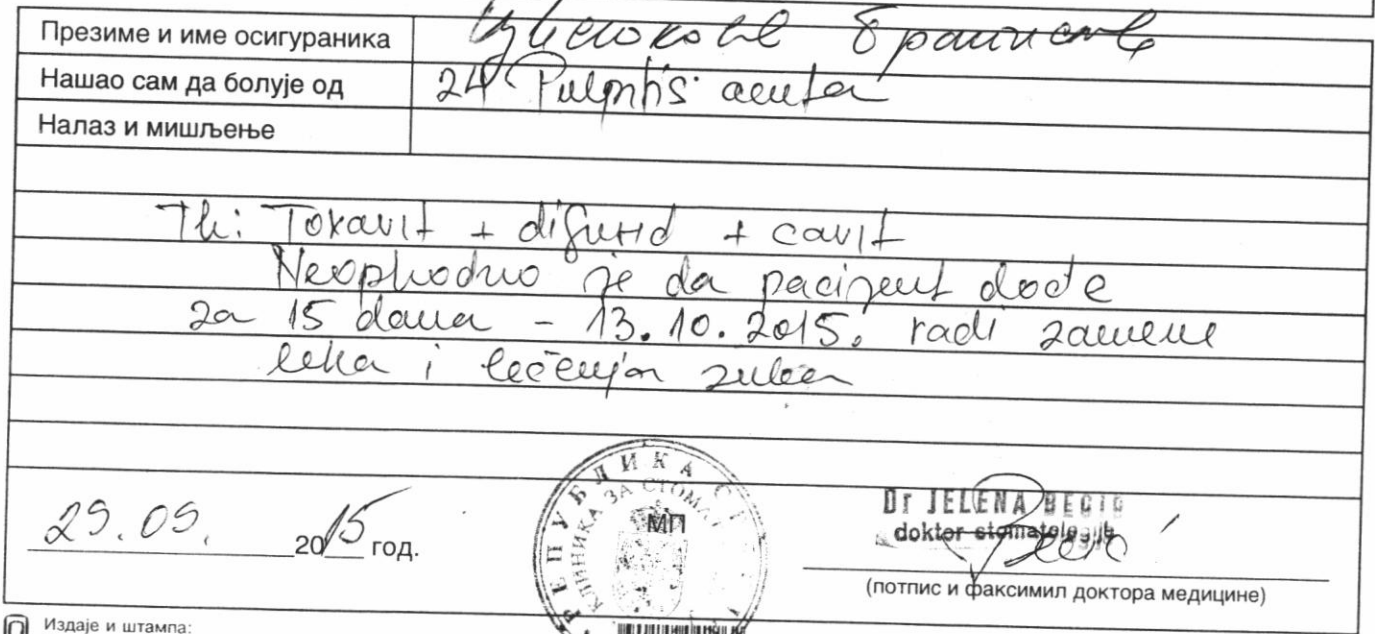 Презиме и име осигураника Бранислав
Нашао сам да болује од 24 Pulpitis acuta
Налаз и мишљење
Th: Toxavit + difund + cavit
Neophodno je da pacijent dođe
za 15 dana - 13.10.2015. radi zamene
leka i lečenja zuba
29.09. 2015 год.
РЕПУБЛИКА С
КЛИНИКА ЗА СТОМАТ
МП
Dr JELENA BECIĆ
doktor stomatologije
(потпис и факсимил доктора медицине)
Издаје и штампа: